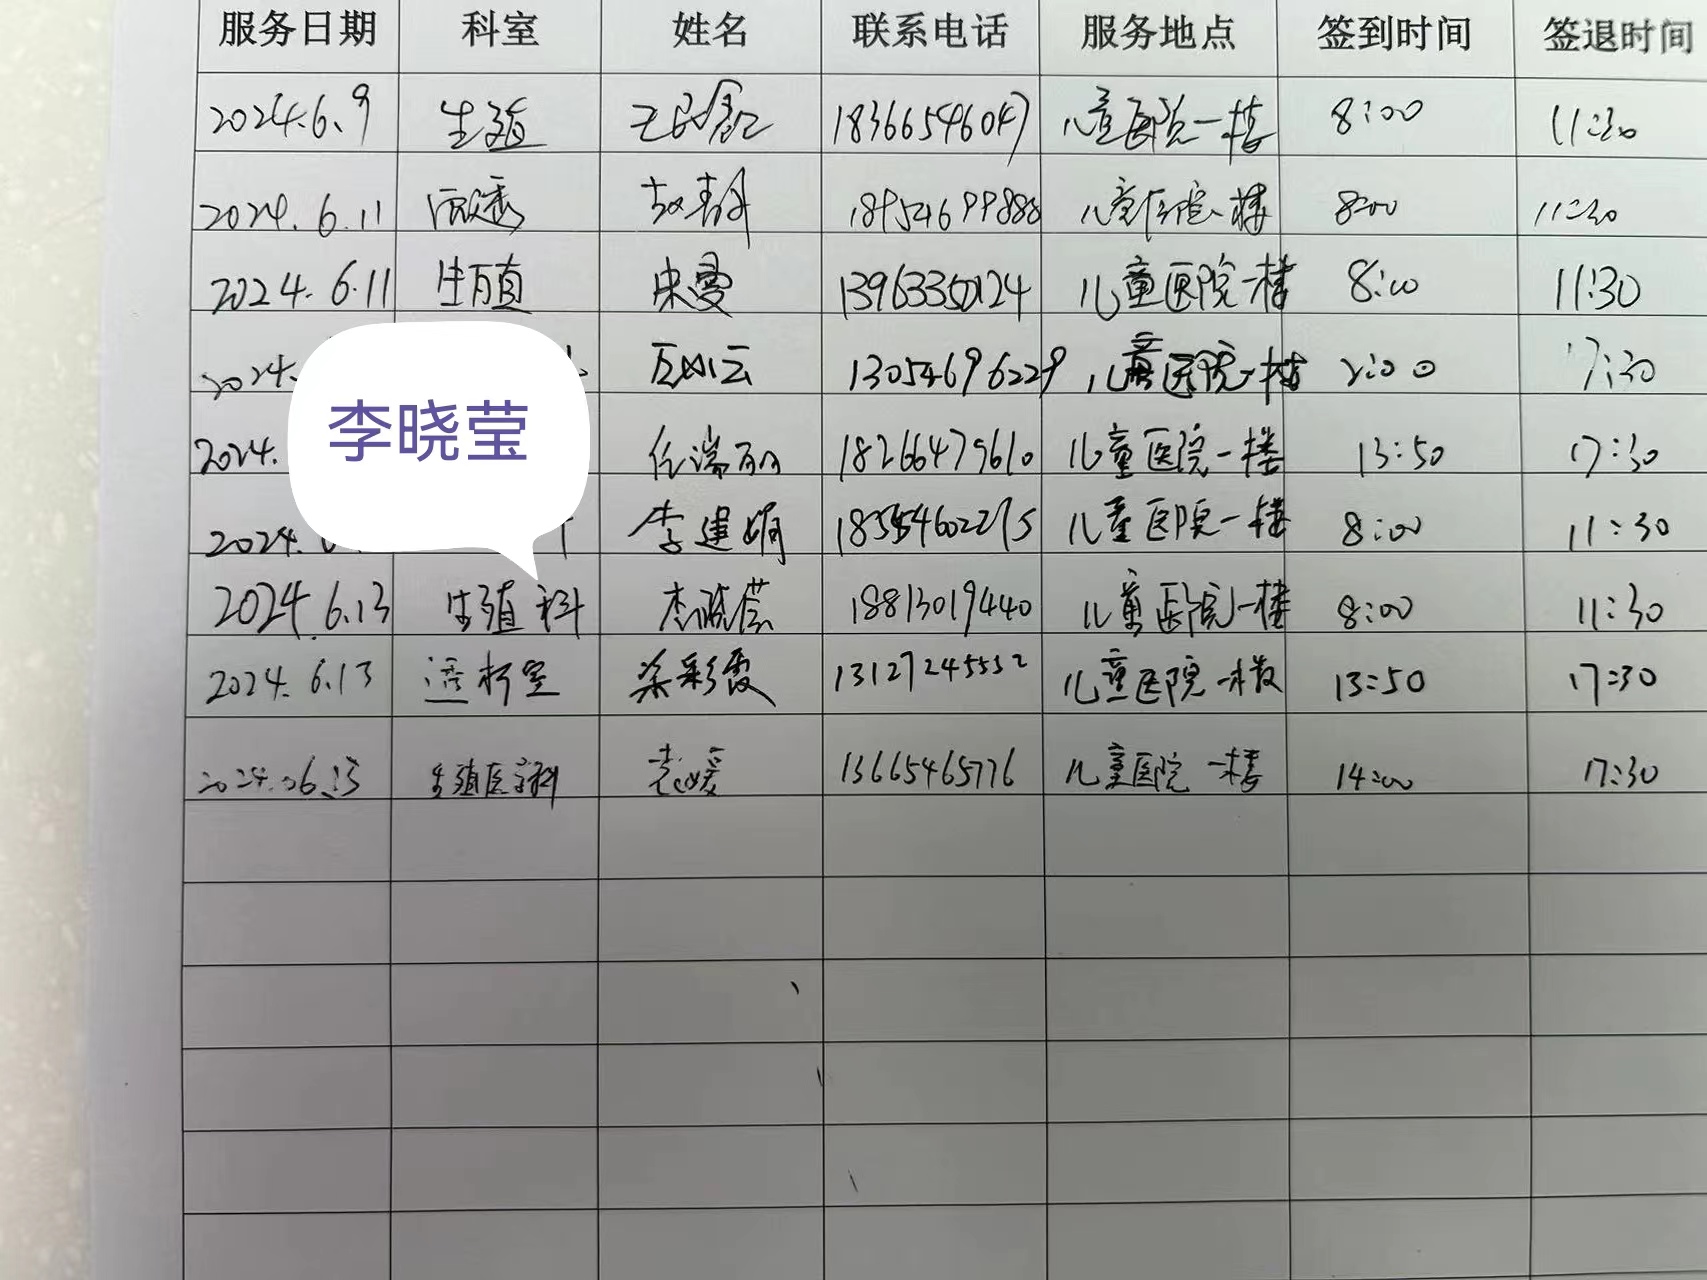 服务日期 科室 姓名 联系电话 服务地点 签到时间 签退时间
2024.6.9 生殖 18366546047 儿童医院一楼 8:00 11:30
2024.6.11 18954699888 儿童医院一楼 8:00 11:30
2024.6.11 生殖 宋雯 儿童医院一楼 8:00 11:30
2024. 13054696229 儿童医院一楼 2:00 17:30
李晓莹
2024. 任瑞丽 18266479610 儿童医院一楼 13:50 17:30
2024. 李建娟 儿童医院一楼 8:00 11:30
2024.6.13 生殖科 18813019440 儿童医院一楼 8:00 11:30
2024.6.13 透析室 13127245552 儿童医院一楼 13:50 17:30
2024.06.13 生殖医学科 13665465776 儿童医院一楼 14:00 17:30